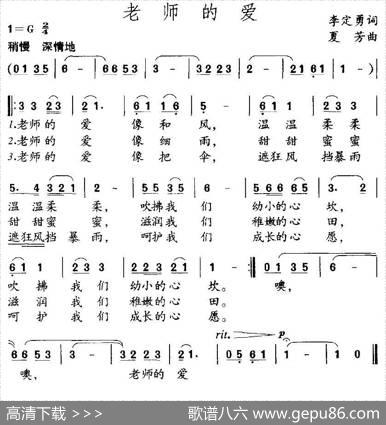 老师的爱
1=G 2/4
李定勇词
稍慢 深情地
夏芳曲
(0135 | 6 - | 6653 | 3 - | 3232 2 | 2 - | 2161 | 1 - )
|: 33 23 | 21. | 61 16 | 5 - | 61 23 | 23 21 |
1.老师的 爱 像和风, 温温柔柔
2.老师的 爱 像细雨, 甜甜蜜蜜
3.老师的 爱 像把伞, 遮狂风挡暴雨
5. 4 321 | 2 - | 55 35 | 6 - | 56 665 | 3. 2 |
温温柔柔, 吹拂我们 幼小的心坎,
甜甜蜜蜜, 滋润我们 稚嫩的心田,
遮狂风挡暴雨, 呵护我们 成长的心愿,
61 2 | 3 23 3 | 22 321 | 1 - :| 0135 | 6 - |
吹拂我们幼小的心坎。 噢,
滋润我们稚嫩的心田。
呵护我们成长的心愿。
rit. p
6653 | 3 - | 3232 23 | 21. | 05 61 | 1 - | 1 0 ||
噢, 老师的爱
高清下载 >>>
歌谱八六 www.gepu86.com